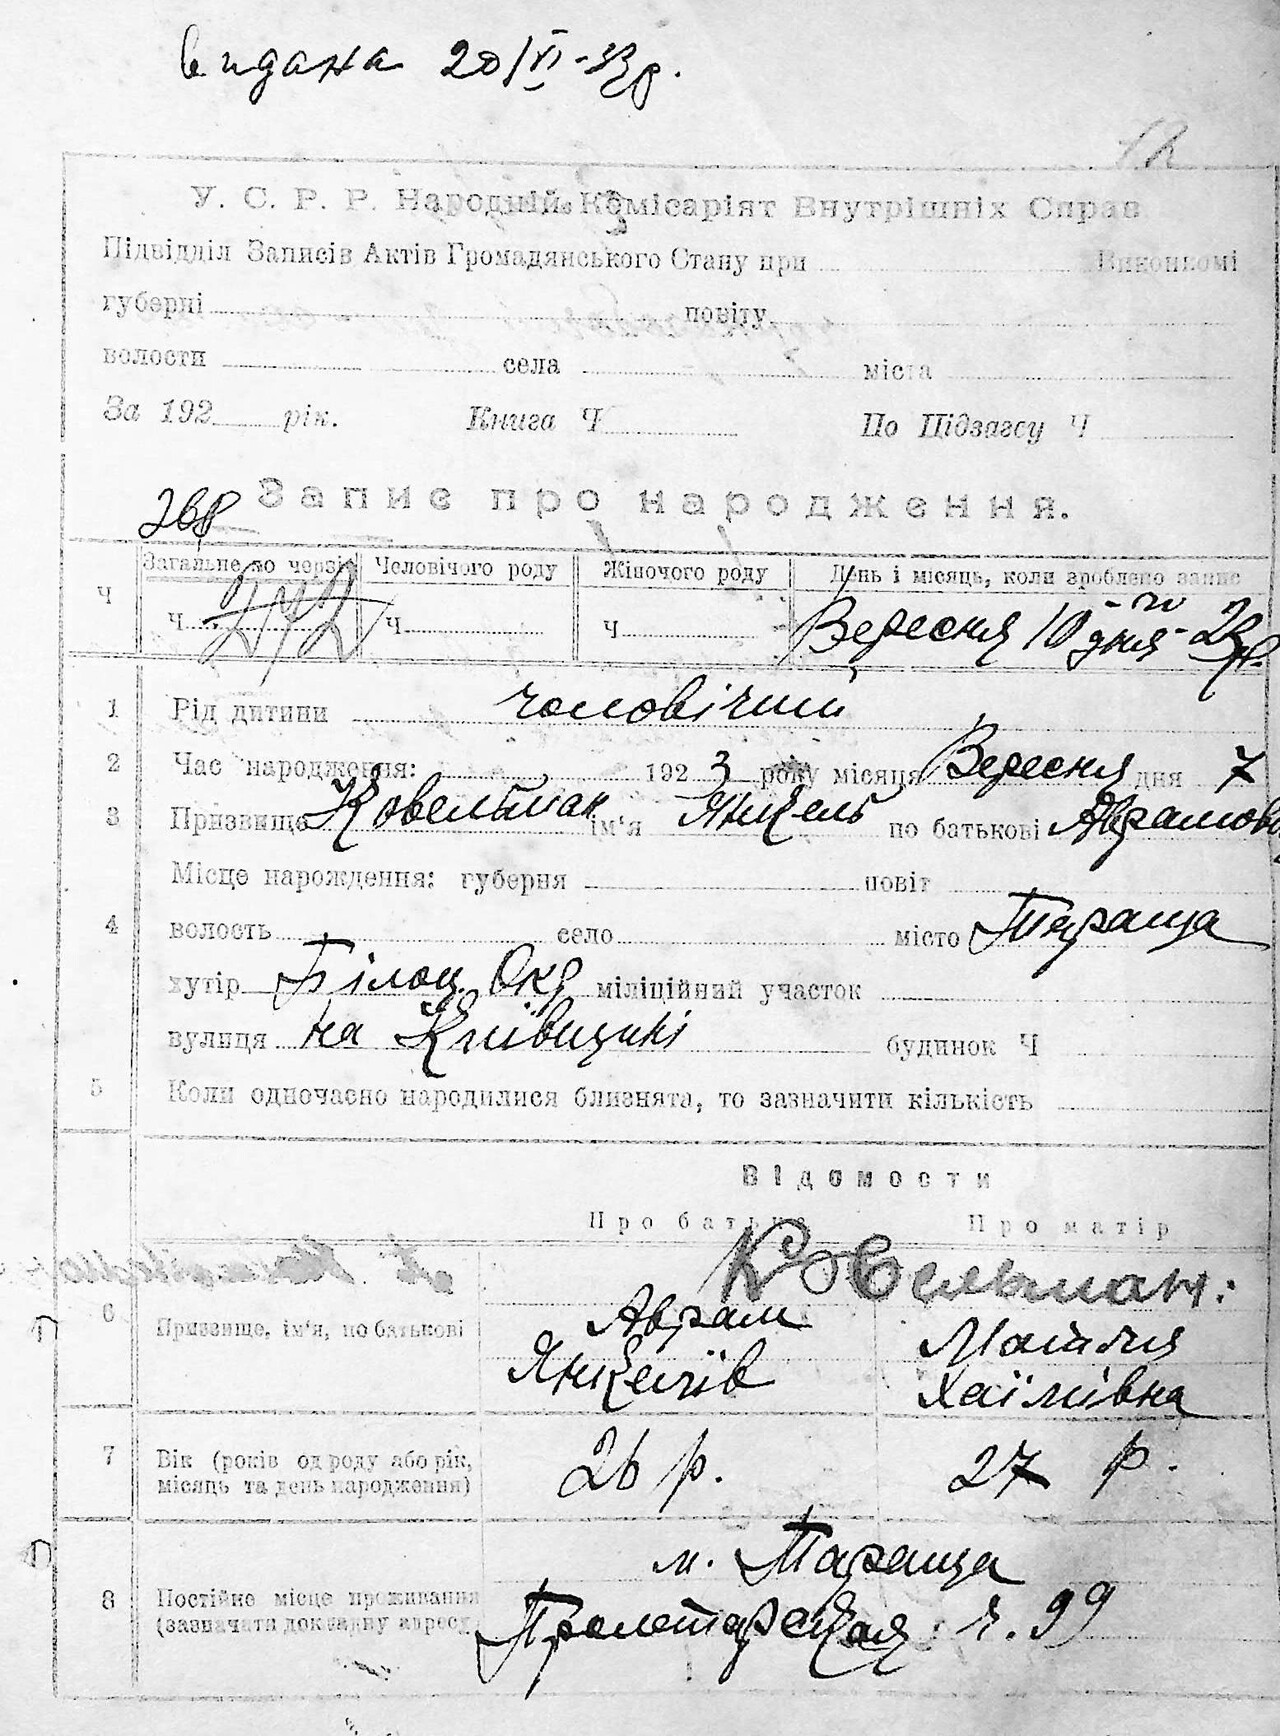 видана 20/VI-33р.
12
У. С. Р. Р. Народній Комісаріят Внутрішніх Справ
Підвідділ Записів Актів Громадянського Стану при Виконкомі
губерні повіту
волости села міста
За 192 рік. Книга Ч По Підзагсу Ч
Запис про народження.
268
Ч Загальне по черзі Чоловічого роду Жіночого роду День і місяць, коли зроблено запис
Ч 272 Ч Ч Вересня 10-го дня - 23 р.
1 Рід дитини чоловічий
2 Час народження: 192 3 року місяця Вересня дня 7
3 Призвище Ковельман ім'я Янкель по батькові Аврамов
Місце народження: губерня повіт
4 волость село місто Тараща
хутір Білоц. Окр міліційний участок
вулиця на Київщині будинок Ч
5 Коли одночасно народилися близнята, то зазначити кількість
Відомости
Про батька Про матір
Ковельман:
6 Призвище, ім'я, по батькові Аврам Матля
Янкелів Хаїмівна
7 Вік (років од роду або рік, місяць та день народження) 26 р. 27 р.
м. Тараща
8 Постійне місце проживання
(зазначати докладну адресу Пролетарская ч. 99